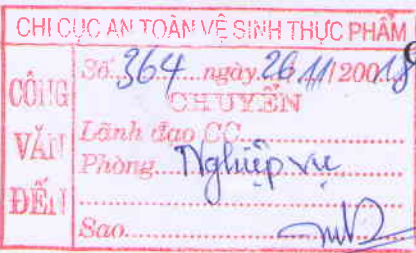 CHI CỤC AN TOÀN VỆ SINH THỰC PHẨM
CÔNG VĂN ĐẾN
Số 364 ngày 26/11/20018
CHUYỂN
Lãnh đạo CC
Phòng Nghiệp vụ
Sao